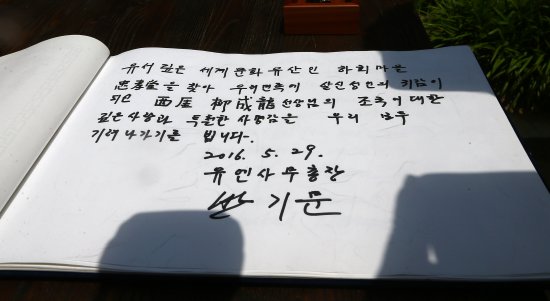 유서 깊은 세계 문화 유산인 하회마을
忠孝堂을 찾아 우리민족이 살신성인의 귀감이
되신 西厓 柳成龍 선생님의 조국에 대한
깊은 사랑과 투철한 사명감을 우리 모두
기려 나가기를 빕니다.
2016. 5. 29.
유엔사무총장
반기문